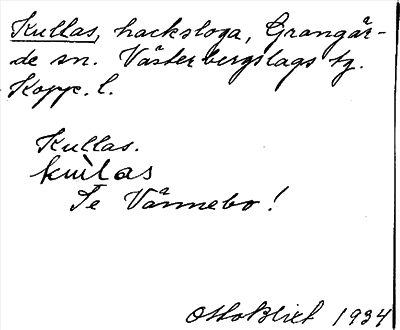 Kullas, hacksloga, Grangär-
de sn. Västerbergslags tg.
Kopp. l.
Kullas.
kùlas
Se Värmebo!
Otto Blixt 1934